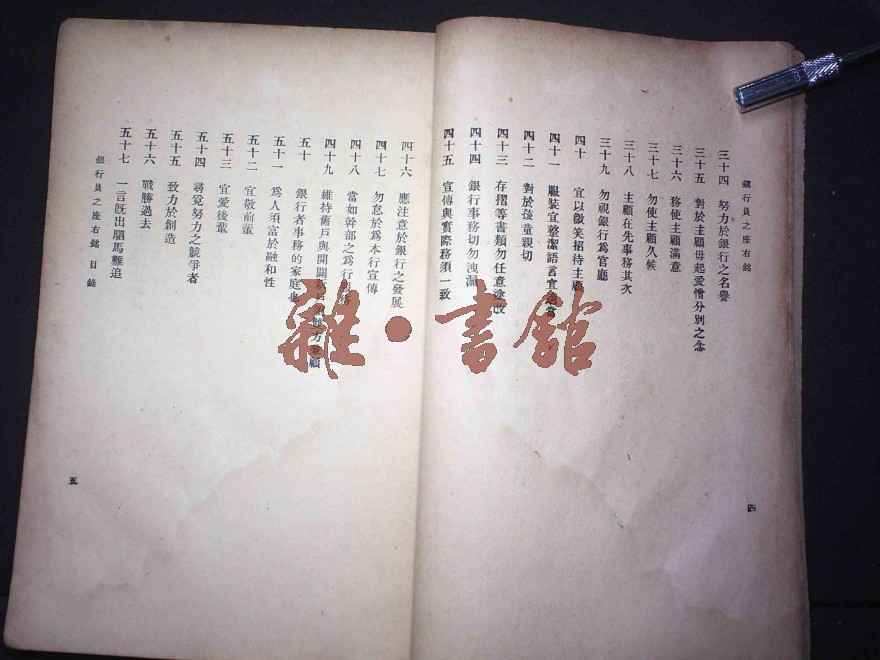 銀行員之座右銘
三十四 努力於銀行之名譽
三十五 對於主顧毋起愛憎分別之念
三十六 務使主顧滿意
三十七 勿使主顧久候
三十八 主顧在先事務其次
三十九 勿視銀行爲官廳
四十 宜以微笑招待主顧
四十一 服裝宜整潔語言宜
四十二 對於孩童親切
四十三 存摺等書類勿任意塗改
四十四 銀行事務切勿洩漏
四十五 宣傳與實際務須一致
四
四十六 應注意於銀行之發展
四十七 勿怠於爲本行宣傳
四十八 當如幹部之爲行
四十九 維持舊戶與開闢 顧
五十 銀行者事務的家庭也
五十一 爲人須富於融和性
五十二 宜敬前輩
五十三 宜愛後輩
五十四 尋覓努力之競爭者
五十五 致力於創造
五十六 戰勝過去
五十七 一言旣出駟馬難追
銀行員之座右銘 目錄
五
雜·書館